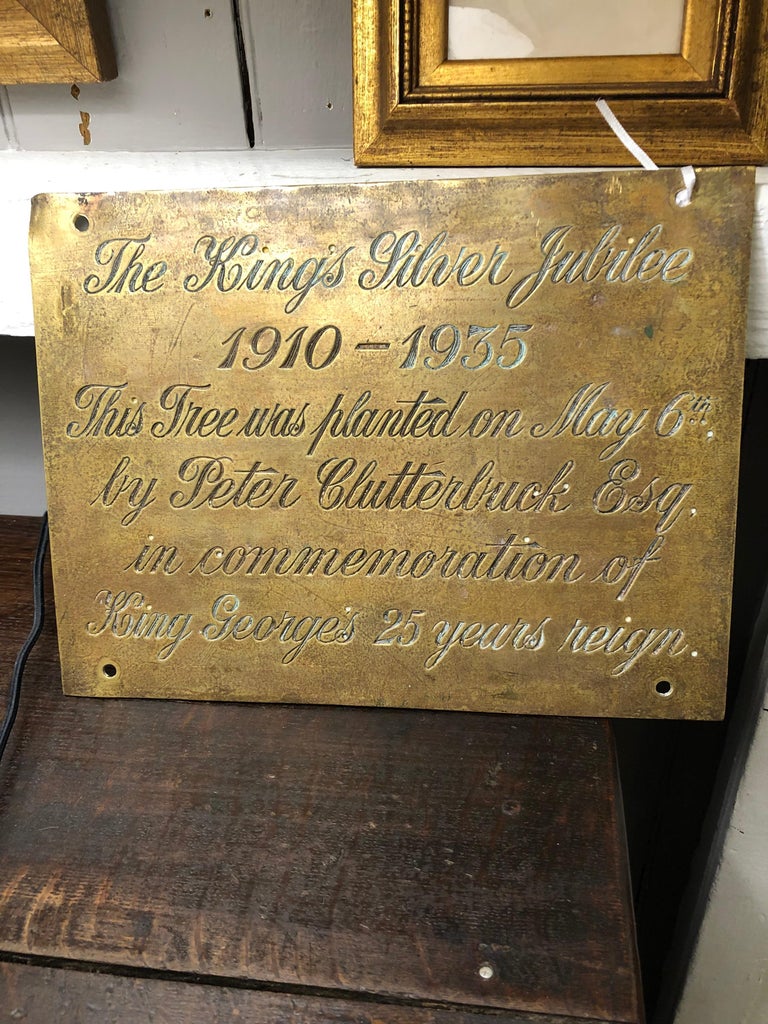 The King's Silver Jubilee
1910 – 1935
This Tree was planted on May 6th.
by Peter Clutterbuck Esq.
in commemoration of
King George's 25 years reign.